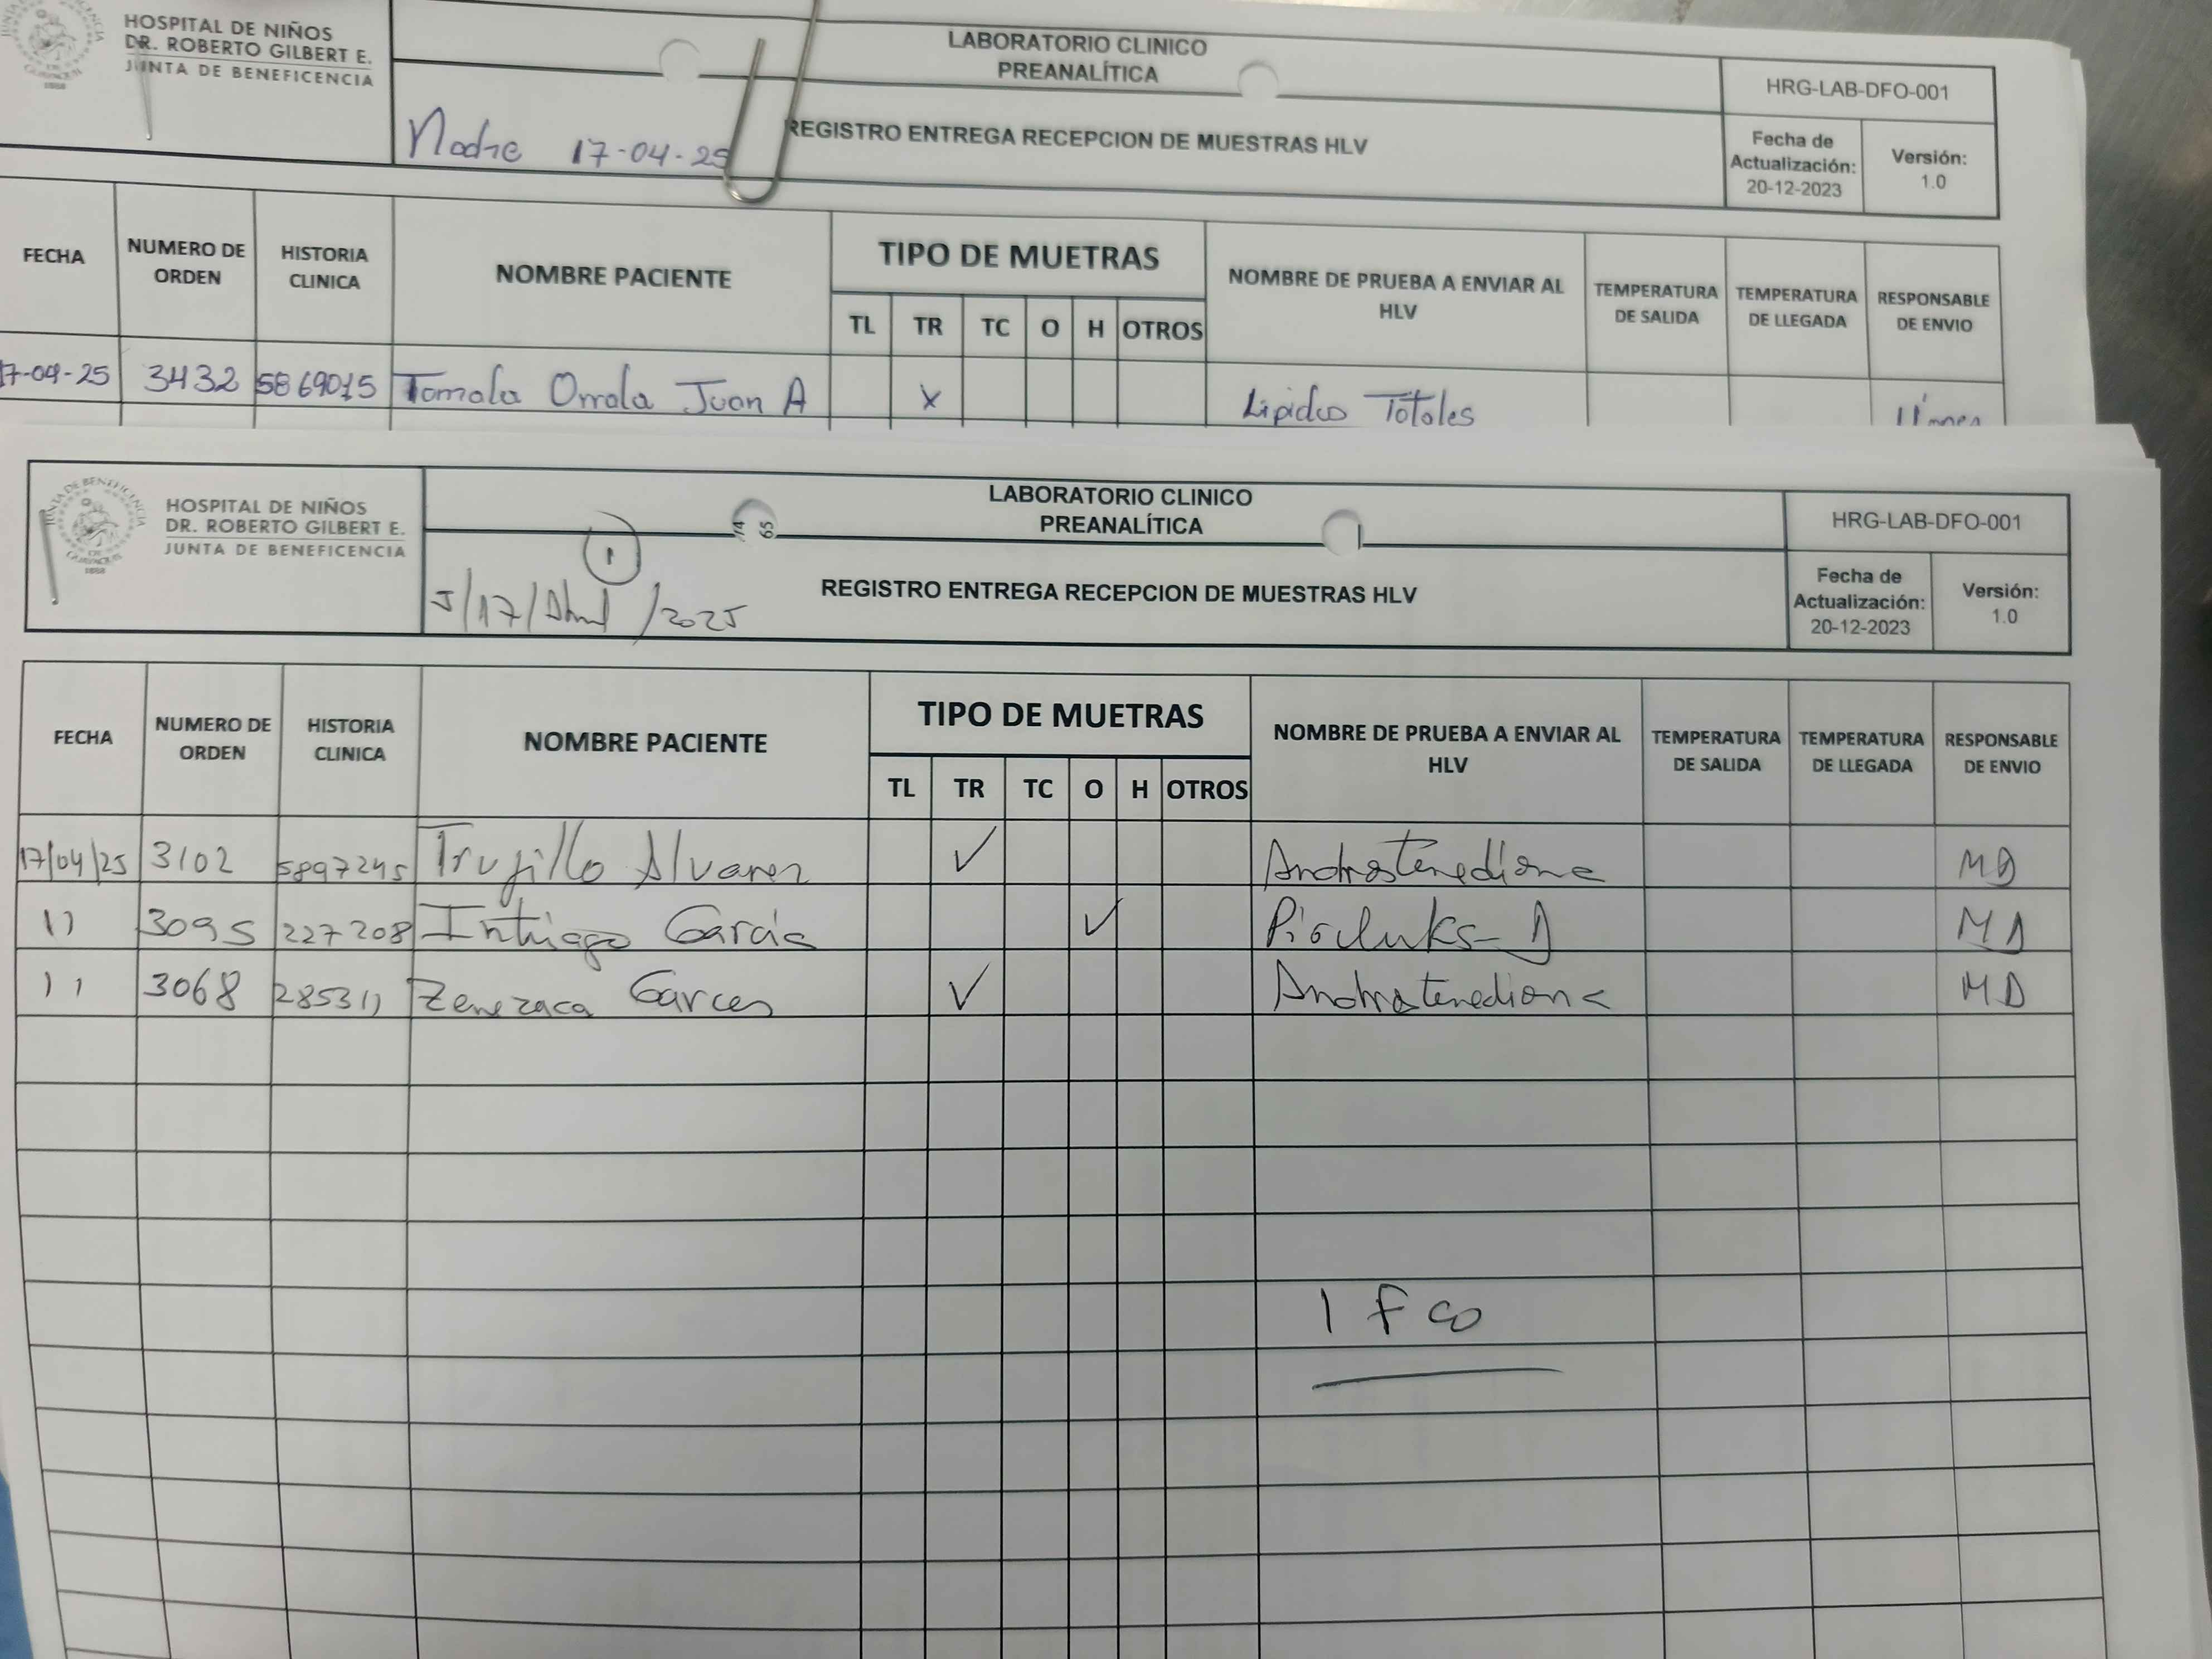 HOSPITAL DE NIÑOS
DR. ROBERTO GILBERT E.
JUNTA DE BENEFICENCIA
LABORATORIO CLINICO
PREANALÍTICA
17-04-25
REGISTRO ENTREGA RECEPCION DE MUESTRAS HLV
HRG-LAB-DFO-001
Fecha de Actualización: 20-12-2023
Versión: 1.0
FECHA NUMERO DE ORDEN HISTORIA CLINICA NOMBRE PACIENTE TIPO DE MUETRAS NOMBRE DE PRUEBA A ENVIAR AL HLV TEMPERATURA DE SALIDA TEMPERATURA DE LLEGADA RESPONSABLE DE ENVIO
TL TR TC O H OTROS
7-04-25 3432 5869015 Tomala Orrala Juan A X Lipidos Totales
JUNTA DE BENEFICENCIA DE GUAYAQUIL
1888
HOSPITAL DE NIÑOS
DR. ROBERTO GILBERT E.
JUNTA DE BENEFICENCIA
LABORATORIO CLINICO
PREANALÍTICA
1
J/17/Abril/2025
REGISTRO ENTREGA RECEPCION DE MUESTRAS HLV
HRG-LAB-DFO-001
Fecha de Actualización: 20-12-2023
Versión: 1.0
FECHA NUMERO DE ORDEN HISTORIA CLINICA NOMBRE PACIENTE TIPO DE MUETRAS NOMBRE DE PRUEBA A ENVIAR AL HLV TEMPERATURA DE SALIDA TEMPERATURA DE LLEGADA RESPONSABLE DE ENVIO
TL TR TC O H OTROS
17/04/25 3102 5897245 Trujillo Alvarez ✓ Androstenediona MD
11 3095 227208 Intriago García ✓ MD
11 3068 Garces ✓ Androstenediona MD
1 fco